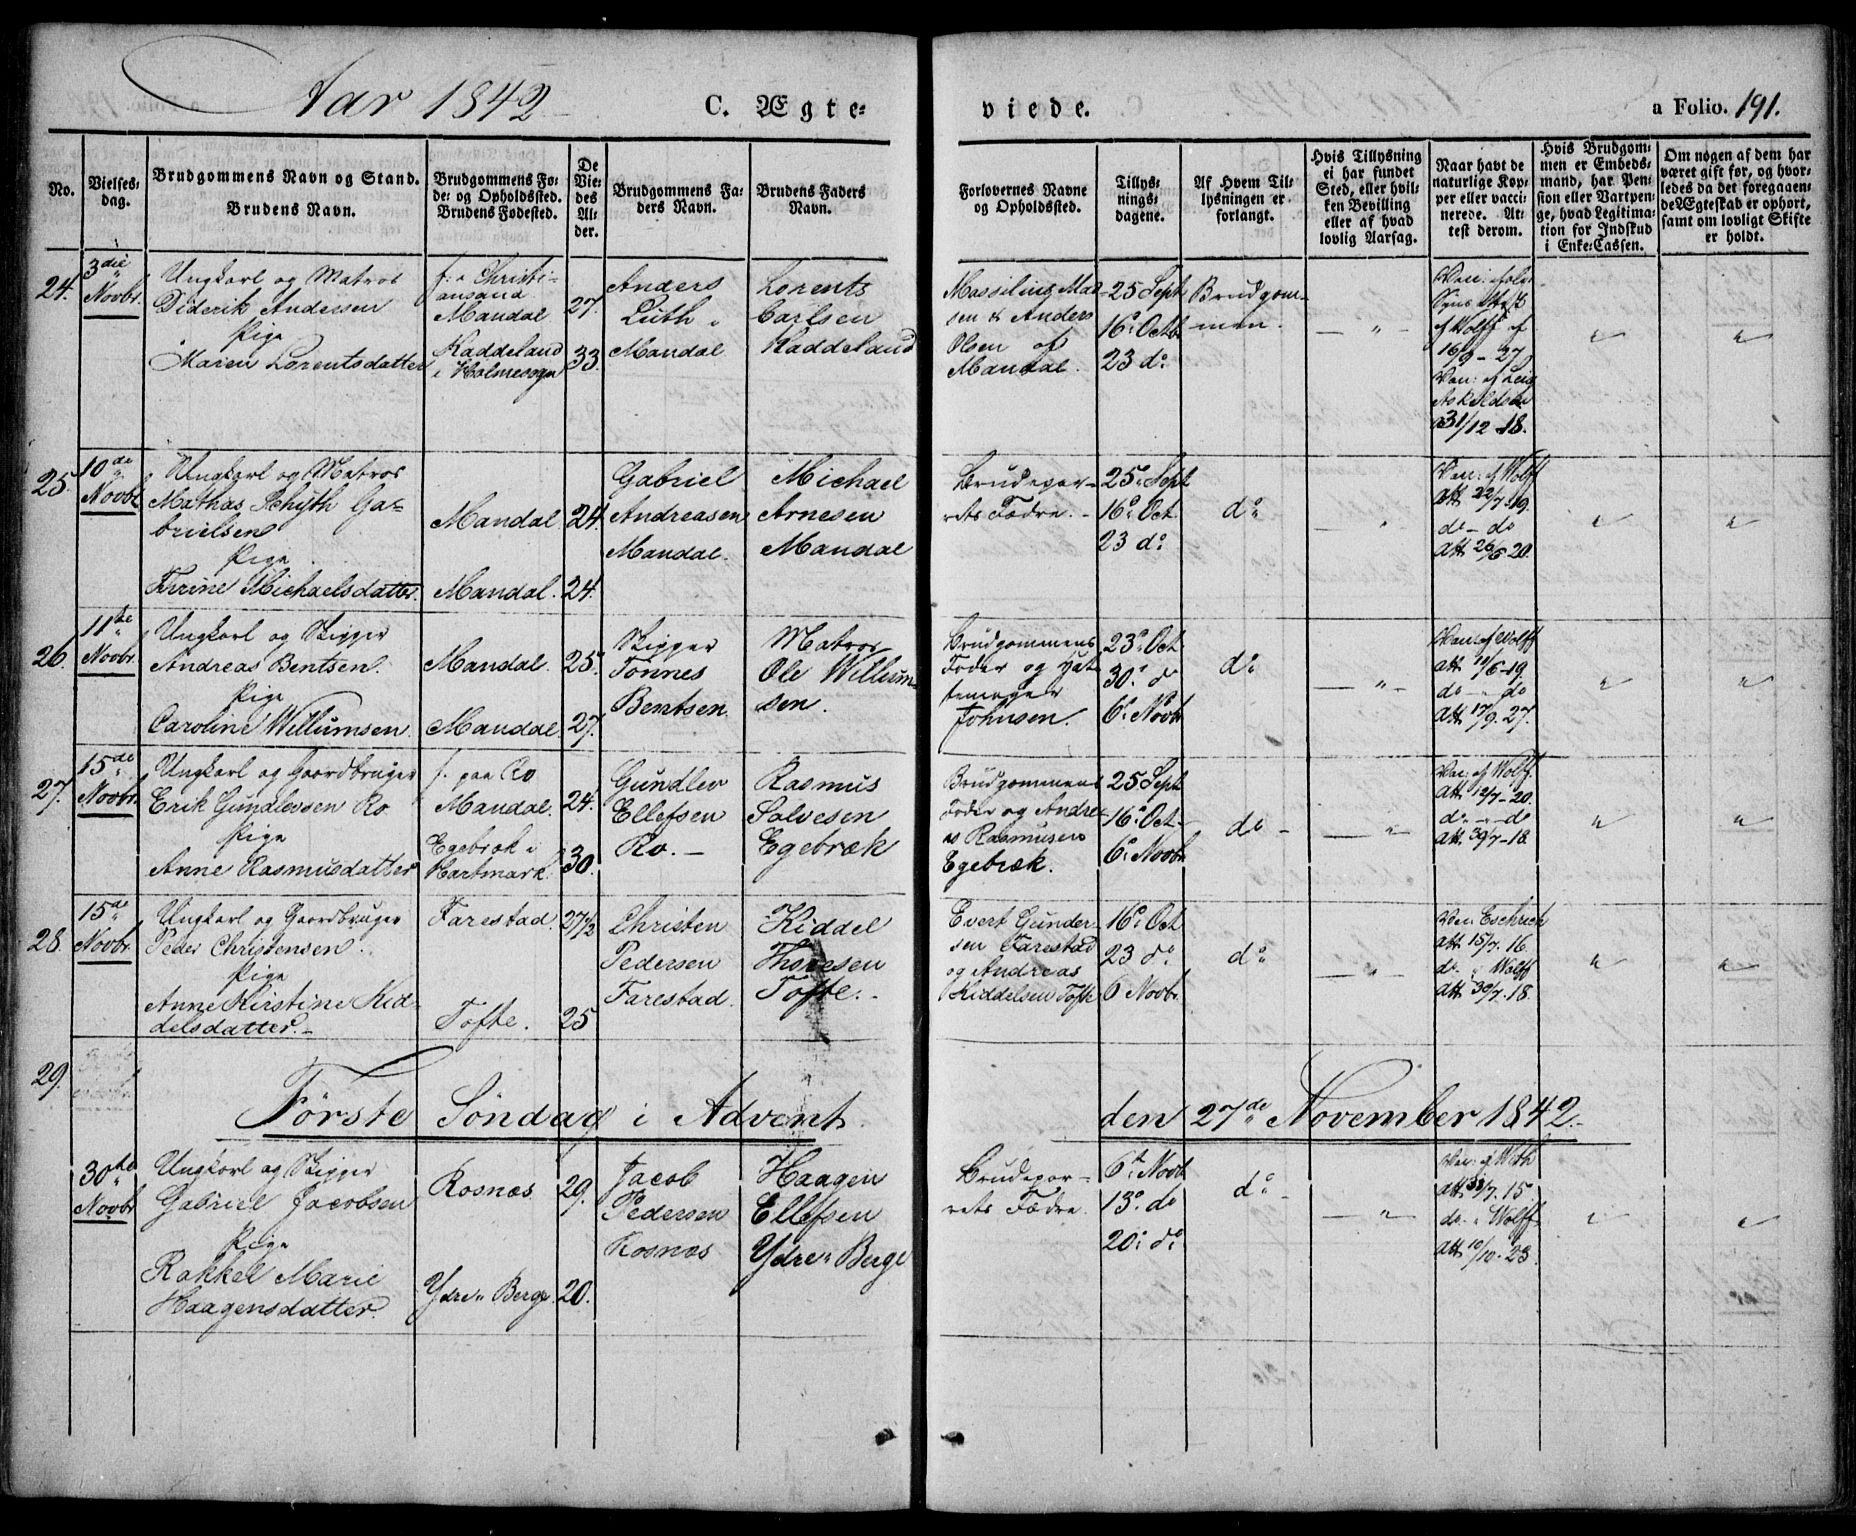 Aar 1842
C. Ægte=
viede.
a Folio. 191.
No.
Vielses=
dag.
Brudgommens Navn og Stand.
Brudens Navn.
Brudgommens Fø=
de= og Opholdssted.
Brudens Fødested.
De
Vie=
des
Al=
der.
Brudgommens Fa=
ders Navn.
Brudens Faders
Navn.
Forlovernes Navne
og Opholdssted.
Tillys=
nings=
dagene.
Af Hvem Til=
lysningen er
forlangt.
Hvis Tillysning
ei har fundet
Sted, eller hvil=
ken Bevilling
eller af hvad
lovlig Aarsag.
Naar havt de
naturlige Kop=
per eller vacci=
nerede. At=
test derom.
Hvis Brudgom=
men er Embeds=
mand, har Pen=
sion eller Vartpen=
ge, hvad Legitima=
tion for Indskud
i Enke=Cassen.
Om nogen af dem har
været gift før, og hvor=
ledes da det foregaaen=
de Ægteskab er ophørt,
samt om lovligt Skifte
er holdt.
24.
3die
Novbr.
Ungkarl og Matros
Diderik Andersen
Pige
Maren Lorentsdatter
f. i Christi-
ansand
Mandal
Haddeland
i Holmesogn
27.
33.
Anders
Luth
Mandal
Lorents
Carlsen
Haddeland
Massilius Mad-
sen & Anders
Olsen af
Mandal.
25 Sept
16 Octb
23 do
Brudgom-
men.
af Wolff af
16/9 - 27
31/12 - 18.
25.
10de
Novbr
Ungkarl og Matros
Mathas Schyth Ga-
brielsen
Pige
Terrine Michaelsdatter.
Mandal
Mandal.
24.
24.
Gabriel
Andreasen
Mandal.
Michael
Arnesen
Mandal
Brudepar-
rets Fædre.
25 Sept
16 Oct.
23 do
do
Vac: af Wolff
Att. 22/7 - 19.
do - do
Att. 26/6 20.
26.
11te
Novbr.
Ungkarl og Skipper
Andreas Bentsen.
Pige
Caroline Willumsen.
Mandal.
Mandal.
25.
27.
Skipper
Tönnes
Bentsen.
Matros
Ole Willum-
sen.
Brudgommens
Fader og Hat-
temager
Johnsen.
23 Oct.
30. do
6 Novbr
do
Vac: af Wolff
Att. 11/6 - 19.
do - do
Att. 17/9. 27.
27.
15de
Novbr.
Ungkarl og Gaardbruger
Erik Gundlevsen Ro
Pige
Anne Rasmusdatter
f. paa Ro
Mandal.
Egebræk i
Hartmark.
24.
30.
Gundlev
Ellefsen
Ro.
Rasmus
Salvesen
Egebræk
Brudgommens
Fader og Andre-
as Rasmusen
Egebræk.
25 Sept
16 Oct
6 Novbr
do
Vac: af Wolff.
Att. 12/7 - 20.
do - do
Att. 30/7 - 18.
28.
15de
Novbr.
Ungkarl og Gaardbruger
Peder Christensen
Pige
Anne Kirstine Kid-
delsdatter.
Farestad.
Tofte.
27 1/2
25
Christen
Pedersen
Farestad.
Kiddel
Thoresen
Tofte.
Evert Gunder-
sen Farestad
og Andreas
Kiddelsen Tofte
16 Oct
23 do
6 Novbr.
do
Vac: Eschrich
Att. 15/7. 16
do. Wolff
Att. 30/7. 18.
29.
Förste Söndag i Advent
den 27de November 1842.
30te
Novbr
Ungkarl og Skipper
Gabriel Jacobsen
Pige
Rakkel Marie
Haagensdatter.
Rosnæs.
Ydre Berge
29.
20.
Jacob
Pedersen
Rosnæs
Haagen
Ellefsen
Ydre Berge
Brudepar-
rets Fædre.
6te Novb
13 do
20 do
do
Att. 15
do. Wolff
Att. 10/10. 23.